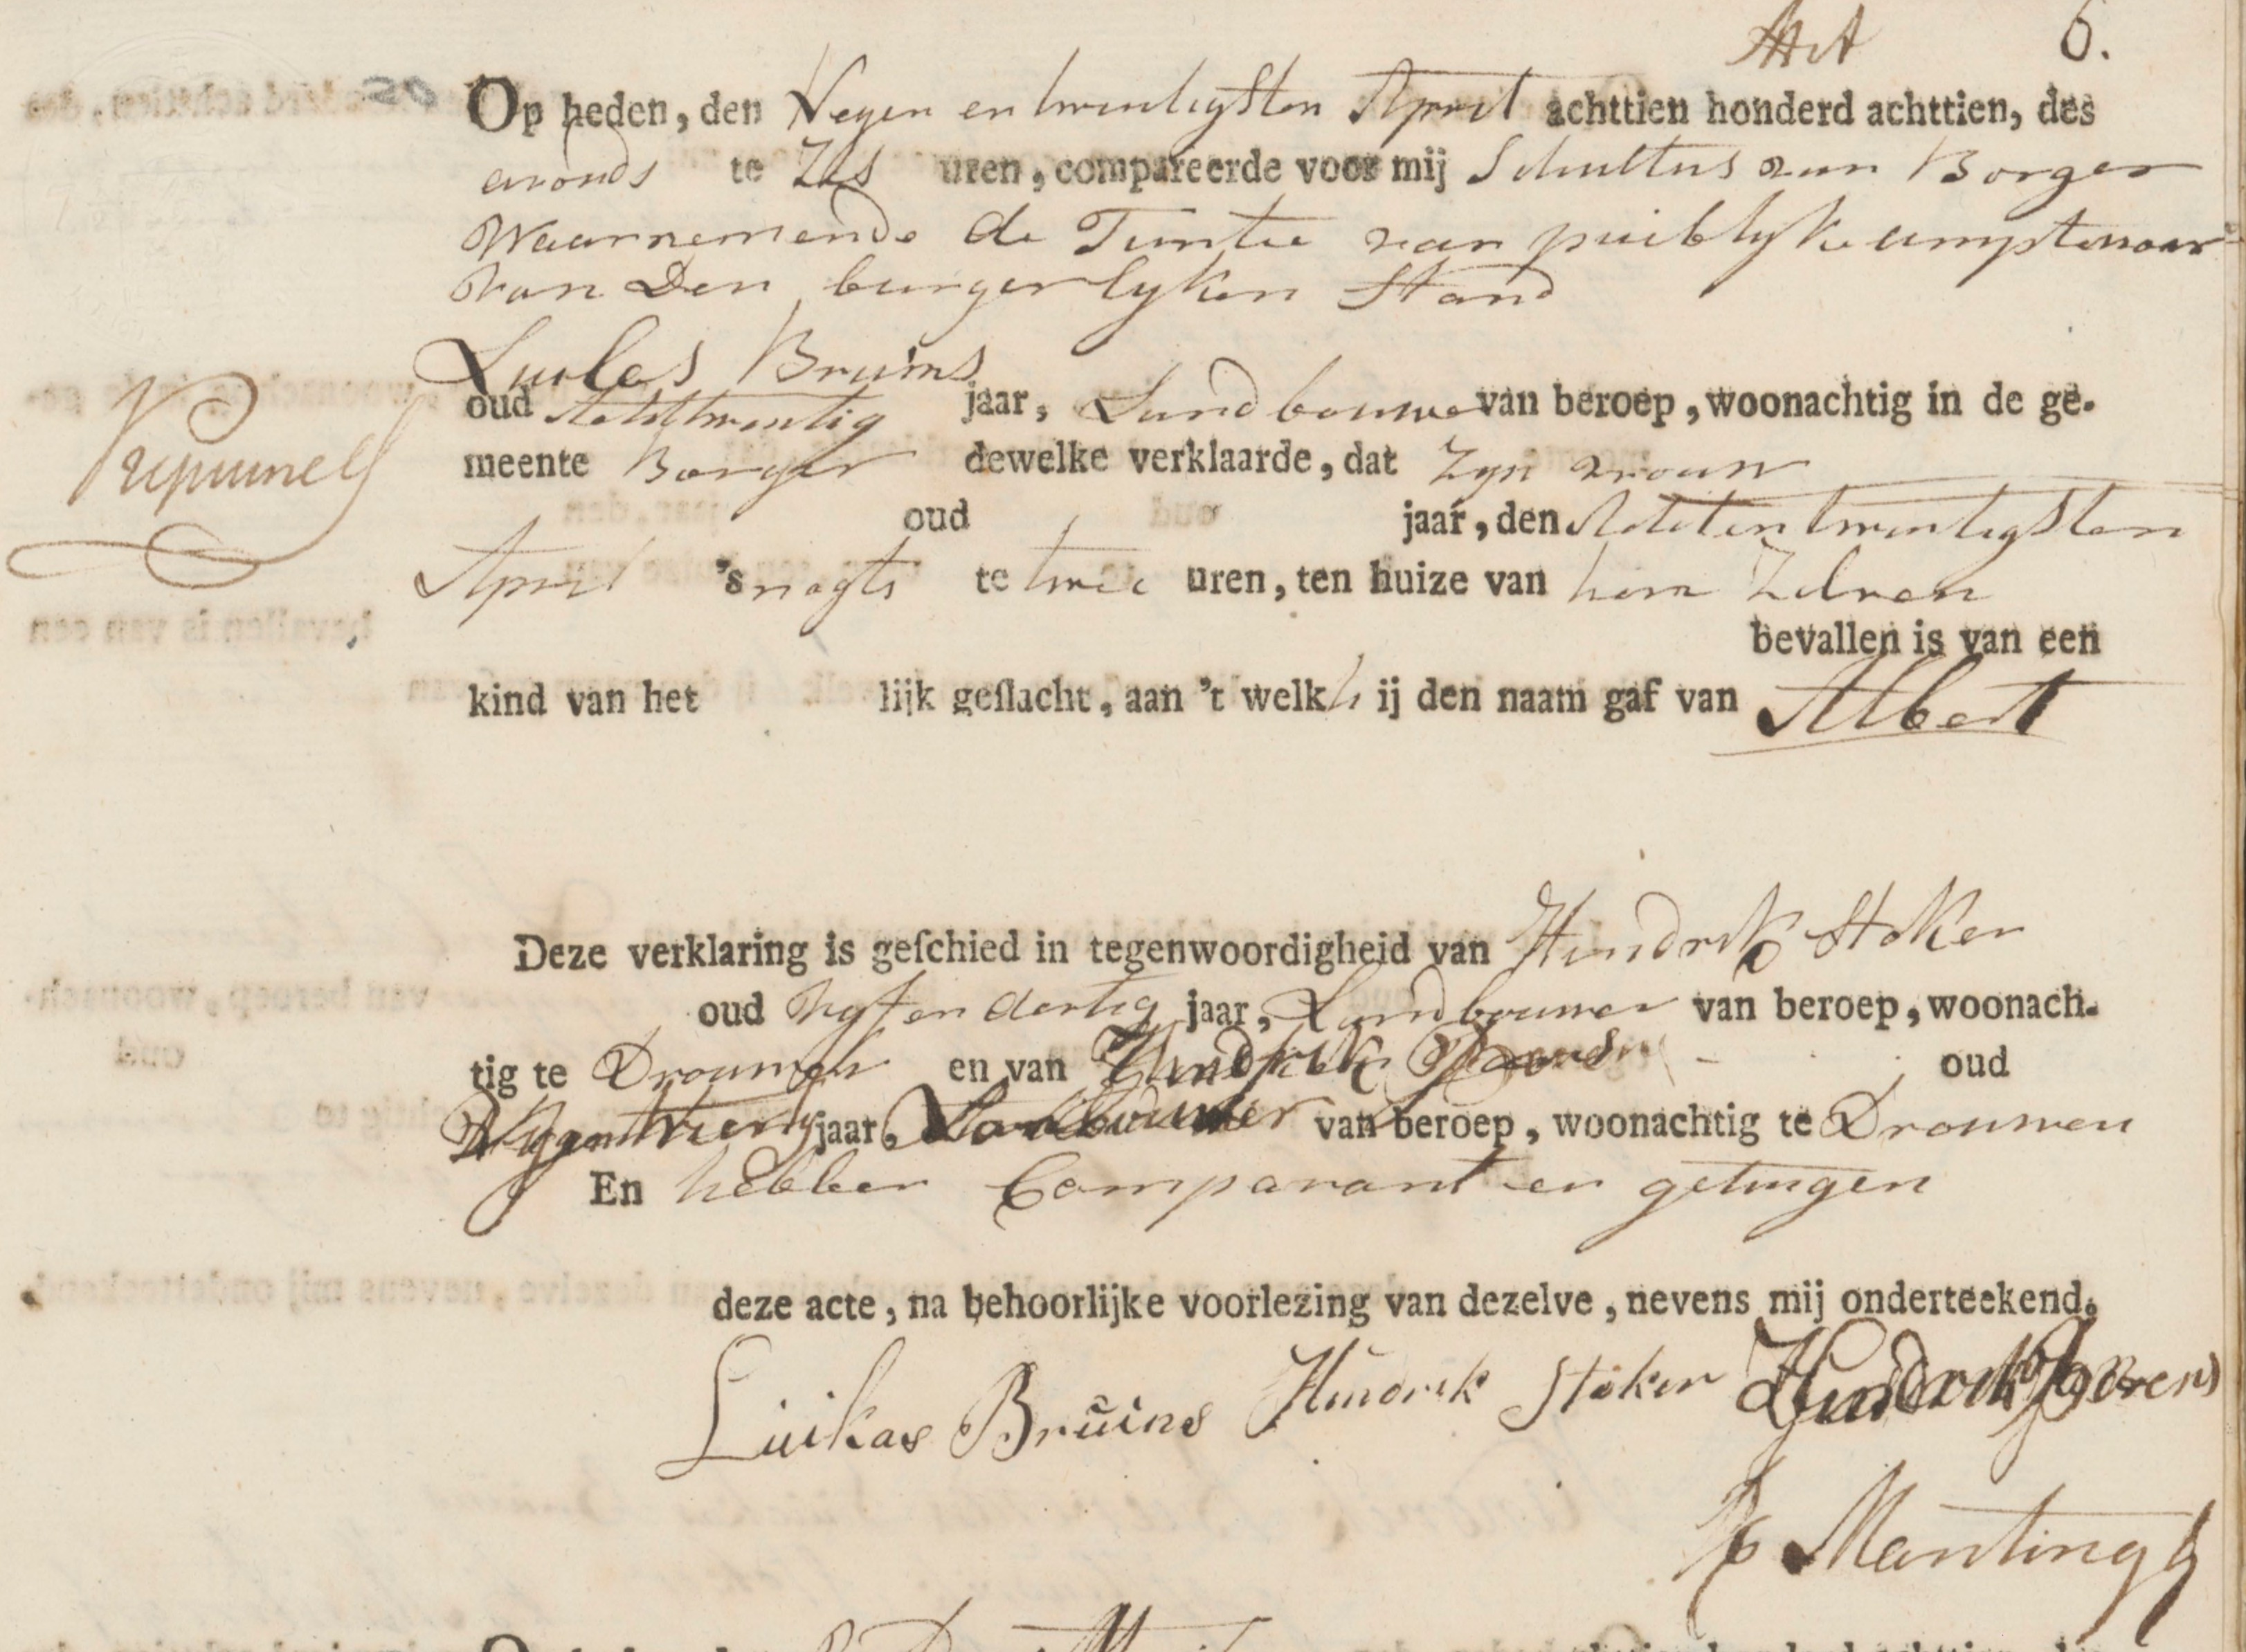 Act 6.
Op heden, den Negen en twintigsten April achttien honderd achttien, des
avonds te Zes uren, compareerde voor mij Schultus van Borger
Waarnemende de Funtie van publyke amptenaar
van Den burgerlyken Stand
Luikas Bruins
oud Achttwintig jaar, Landbouwer van beroep, woonachtig in de ge-
meente Borger dewelke verklaarde, dat zyn vrouw
oud jaar, den Achtentwintigsten
April 's nagts te twee uren, ten huize van hem Zelven
bevallen is van een
kind van het lijk geslacht, aan 't welk hij den naam gaf van Albert
Deze verklaring is geschied in tegenwoordigheid van Hindrik Stoker
oud vyf en dertig jaar, Landbouwer van beroep, woonach-
tig te Drouwen en van Hindrik oud
jaar, Landbouwer van beroep, woonachtig te Drouwen
En hebben Comparant en getuigen
deze acte, na behoorlijke voorlezing van dezelve, nevens mij onderteekend.
Luikas Bruins Hindrik Stoker Hindrik
Mantingh